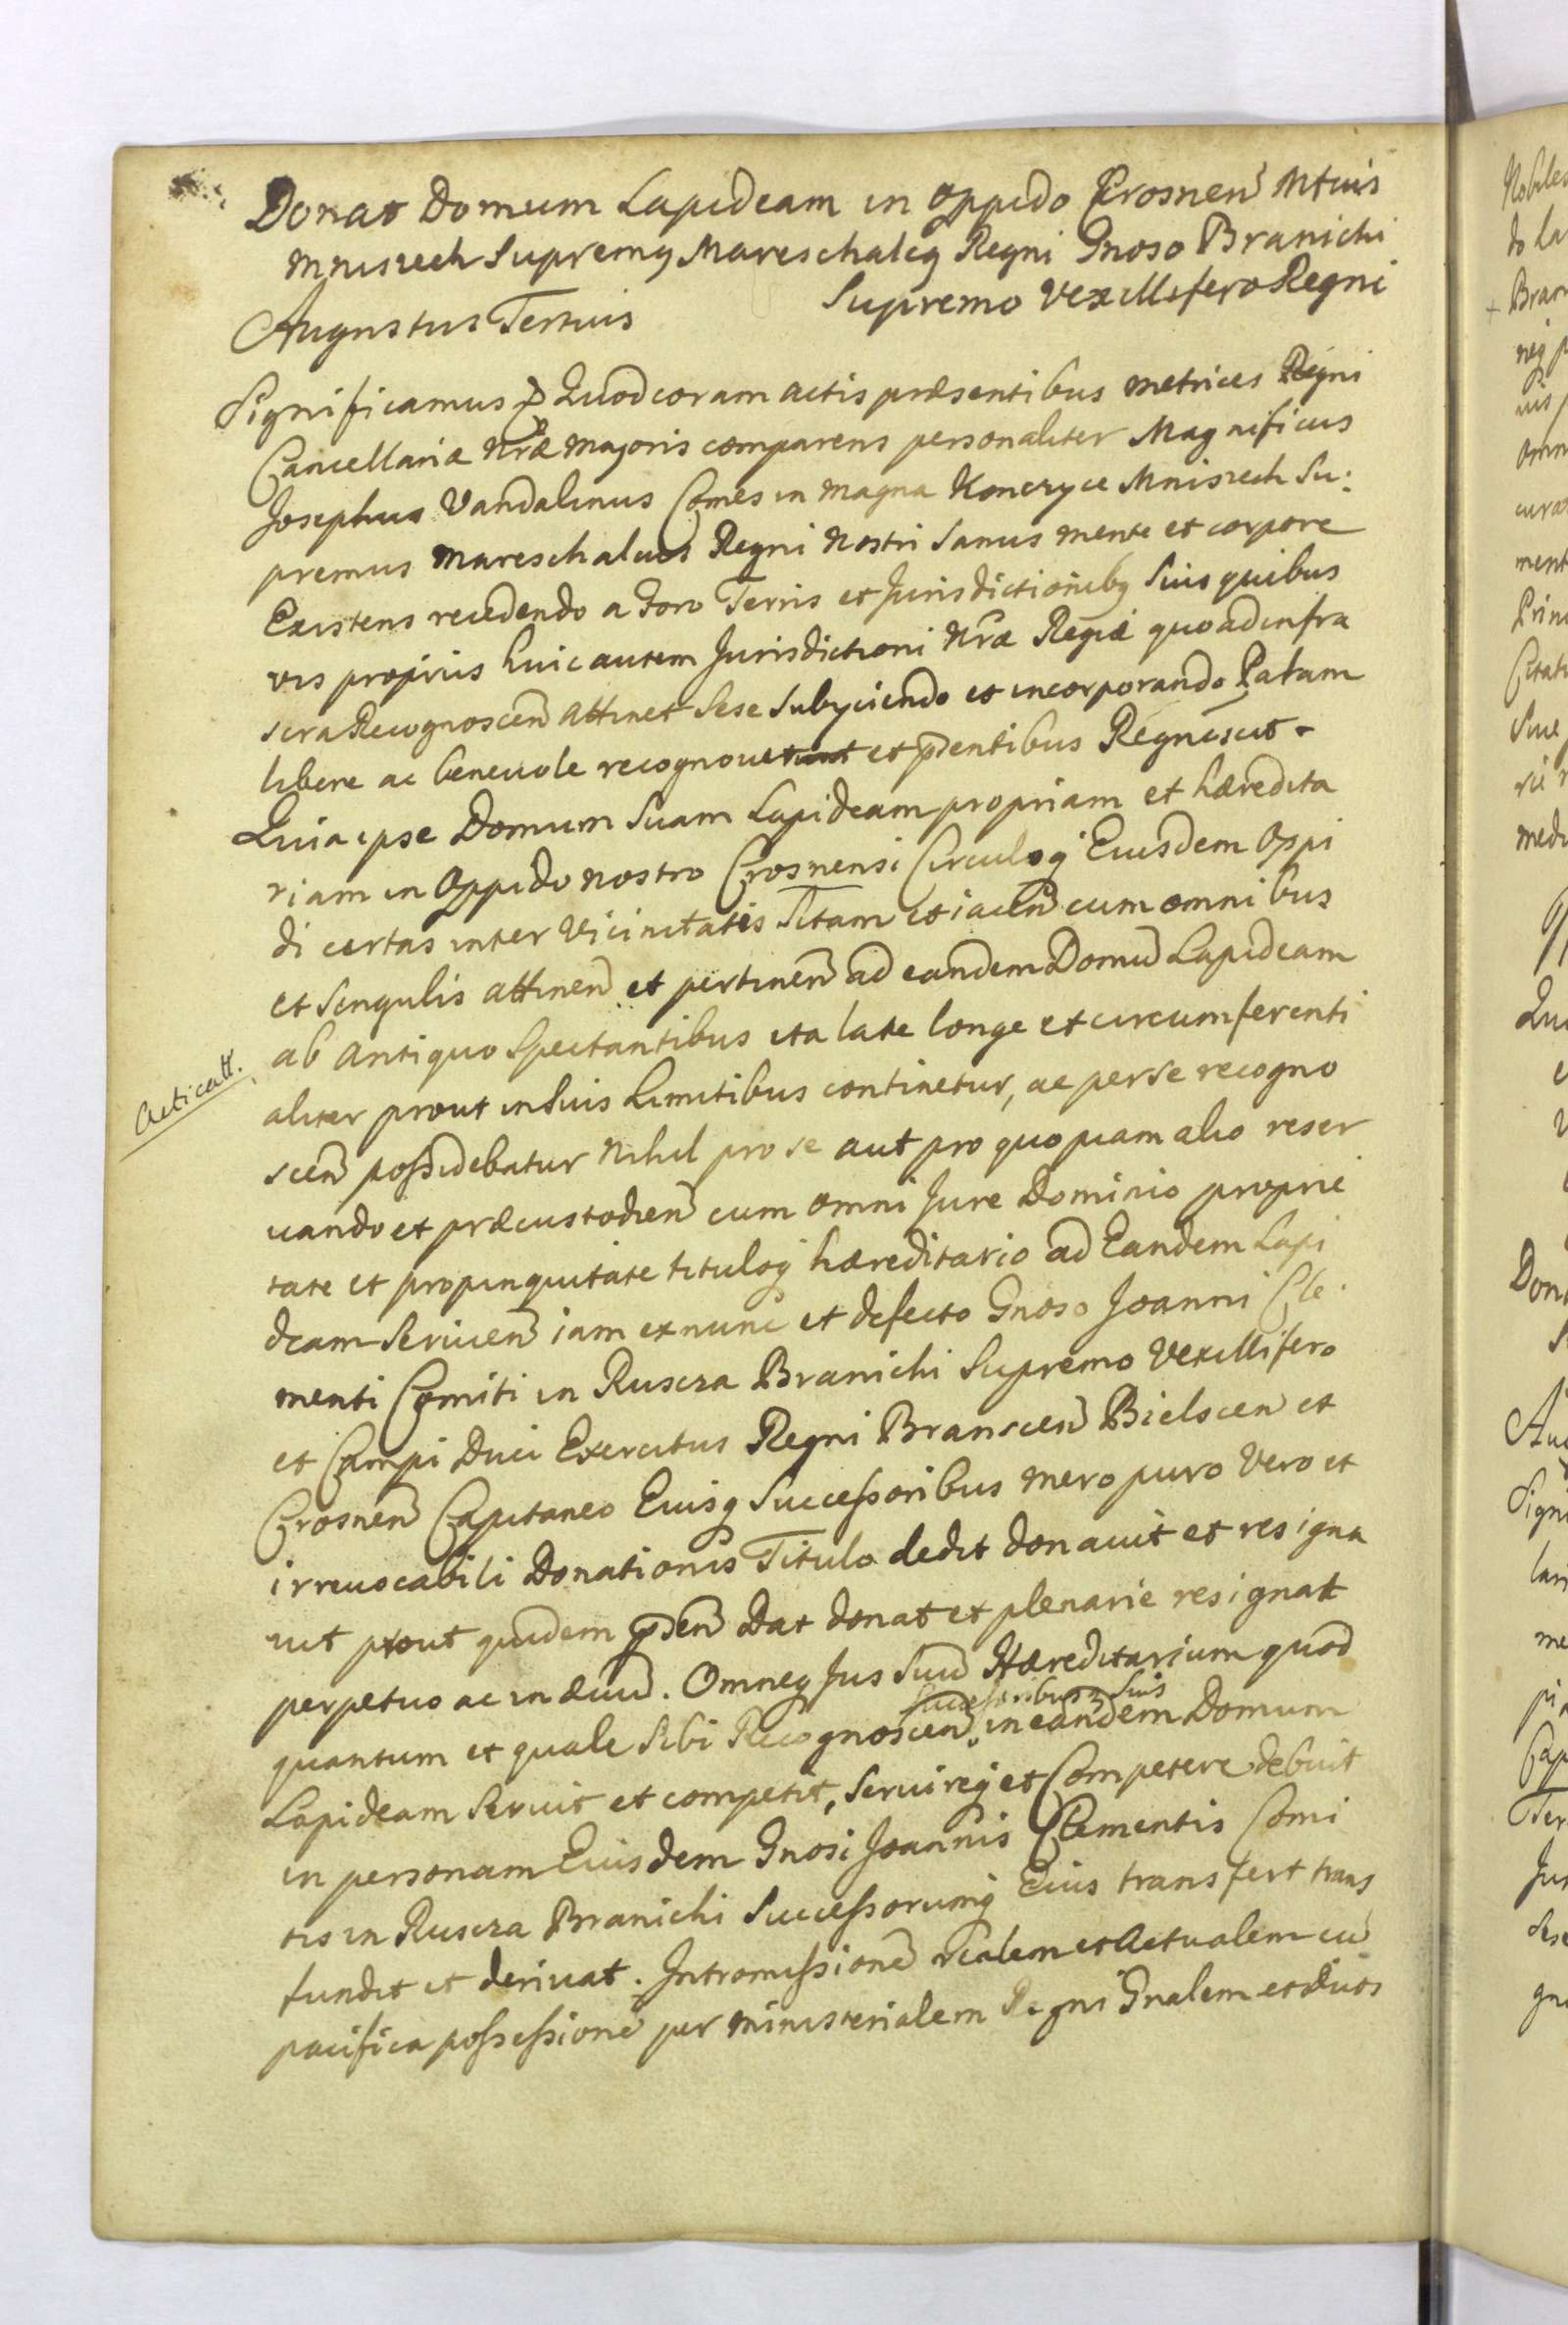 Donat Domum Lapideam in Oppido Crosnen Mtuis
Mniszech Supremq Mareschalcq Regni Gnoso Branichi
Supremo Vexillifero Regni
Augustus Tertius
Significamus Quod coram actis præsentibus metrices Regni
Cancellariæ Nræ Majoris comparens personaliter Magnificus
Josephus Vandalinus Comes in Magna Konczyce Mniszech Su:
premus Mareschalcus Regni Nostri Sanus mente et corpore
Existens recedendo a Foro Terris et Jurisdictionibq Suis quibus
vis propriis huic autem Jurisdictioni Nræ Regiæ quoad infra
scra Recognoscen attinet Sese Subyciendo et incorporando Palam
libere ac benevole recognovit et pñtibus Regnoscit.
Quia ipse Domum Suam Lapideam propriam et hæredita
riam in Oppido nostro Crosnensi Circuloq Eiusdem Oppi
di certas inter Vicinitates Sitam et iacen cum omnibus
et Singulis attinen et pertinen ad eandem Domu Lapideam
ab antiquo Spectantibus ita late longe et circumferenti
Acticatt.
aliter prout in Suis Limitibus continetur, ac per se recogno
scen possidebatur Nihil pro se aut pro quopiam alio reser
uando et præcustodien cum omni Jure Dominio proprie
tate et propinquitate tituloq hæreditario ad Eandem Lapi
deam Servien iam ex nunc et defecto Gnoso Joanni Cle:
menti Comiti in Ruscza Branichi Supremo Vexillifero
et Campi Duci Exercitus Regni Branscen Bielscen et
Crosnen Capitaneo Eiusq Successoribus mero puro Vero et
irreuocabili Donationis Titulo dedit donauit et resigna
uit prout quidem pñten Dat donat et plenarie resignat
perpetuo ac in æuu. Omneq Jus Suu Hæreditarium quod
Successoribusq Suis
quantum et quale Sibi Recognoscen in eandem Domum
Lapideam Seruit et competit, Seruireq et Competere debuit
in personam Eiusdem Gnosi Joannis Clementis Comi
tis in Ruscza Branichi Successorumq Eius transfert trans
fundit et deriuat. Intromissione realem et Actualem cu
pacifica possessione per Ministerialem Regni Gnalem et diuos